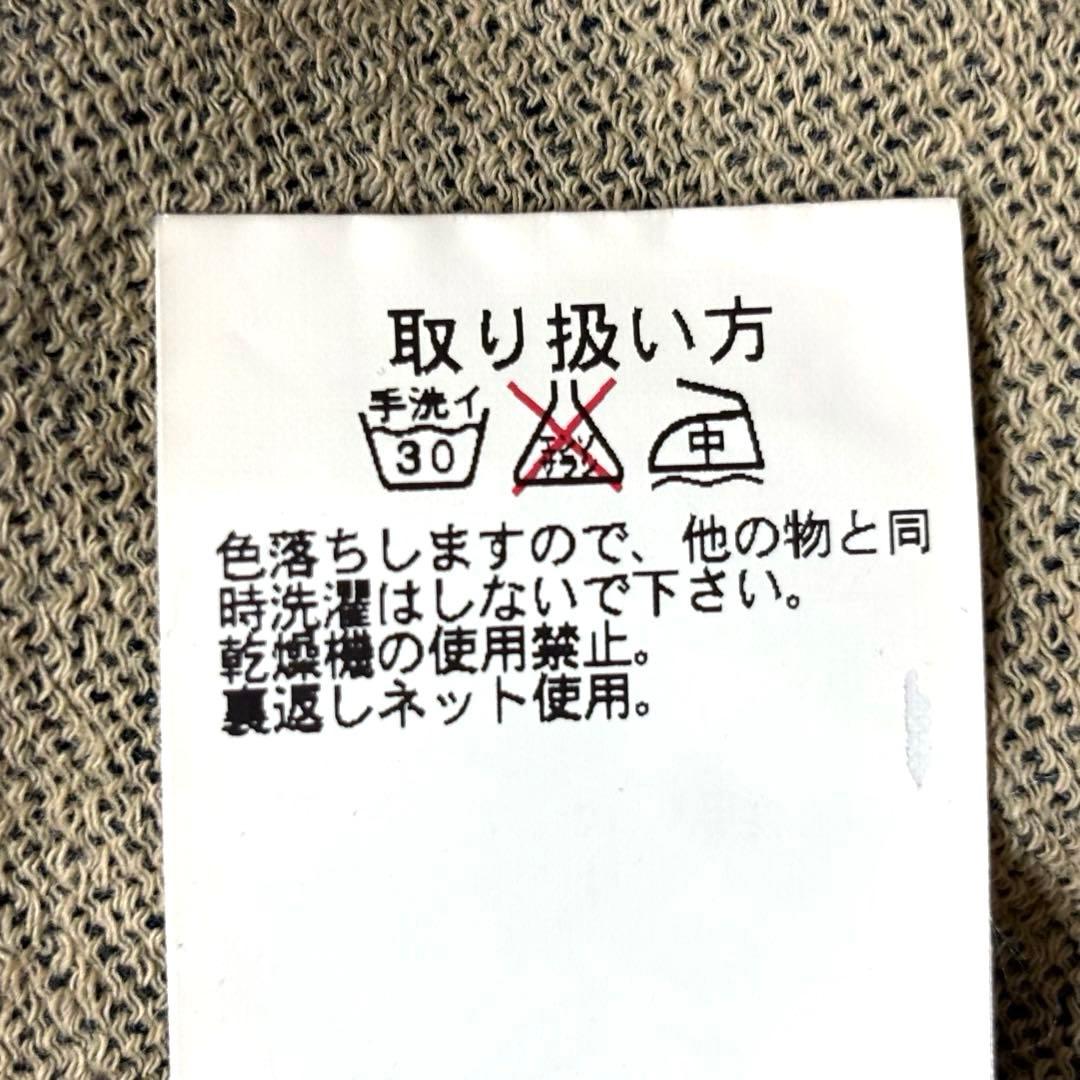 取り扱い方
手洗イ
30
エンソ
サラシ
中
色落ちしますので、他の物と同
時洗濯はしないで下さい。
乾燥機の使用禁止。
裏返しネット使用。